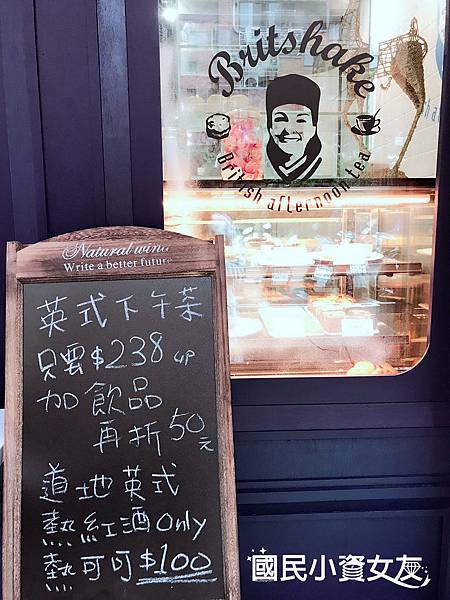 Britshake
British afternoon tea
Natural wind
Write a better future
英式下午茶
只要$238 up
加飲品
再折50元
道地英式
熱紅酒Only
熱可可$100
國民小資女友